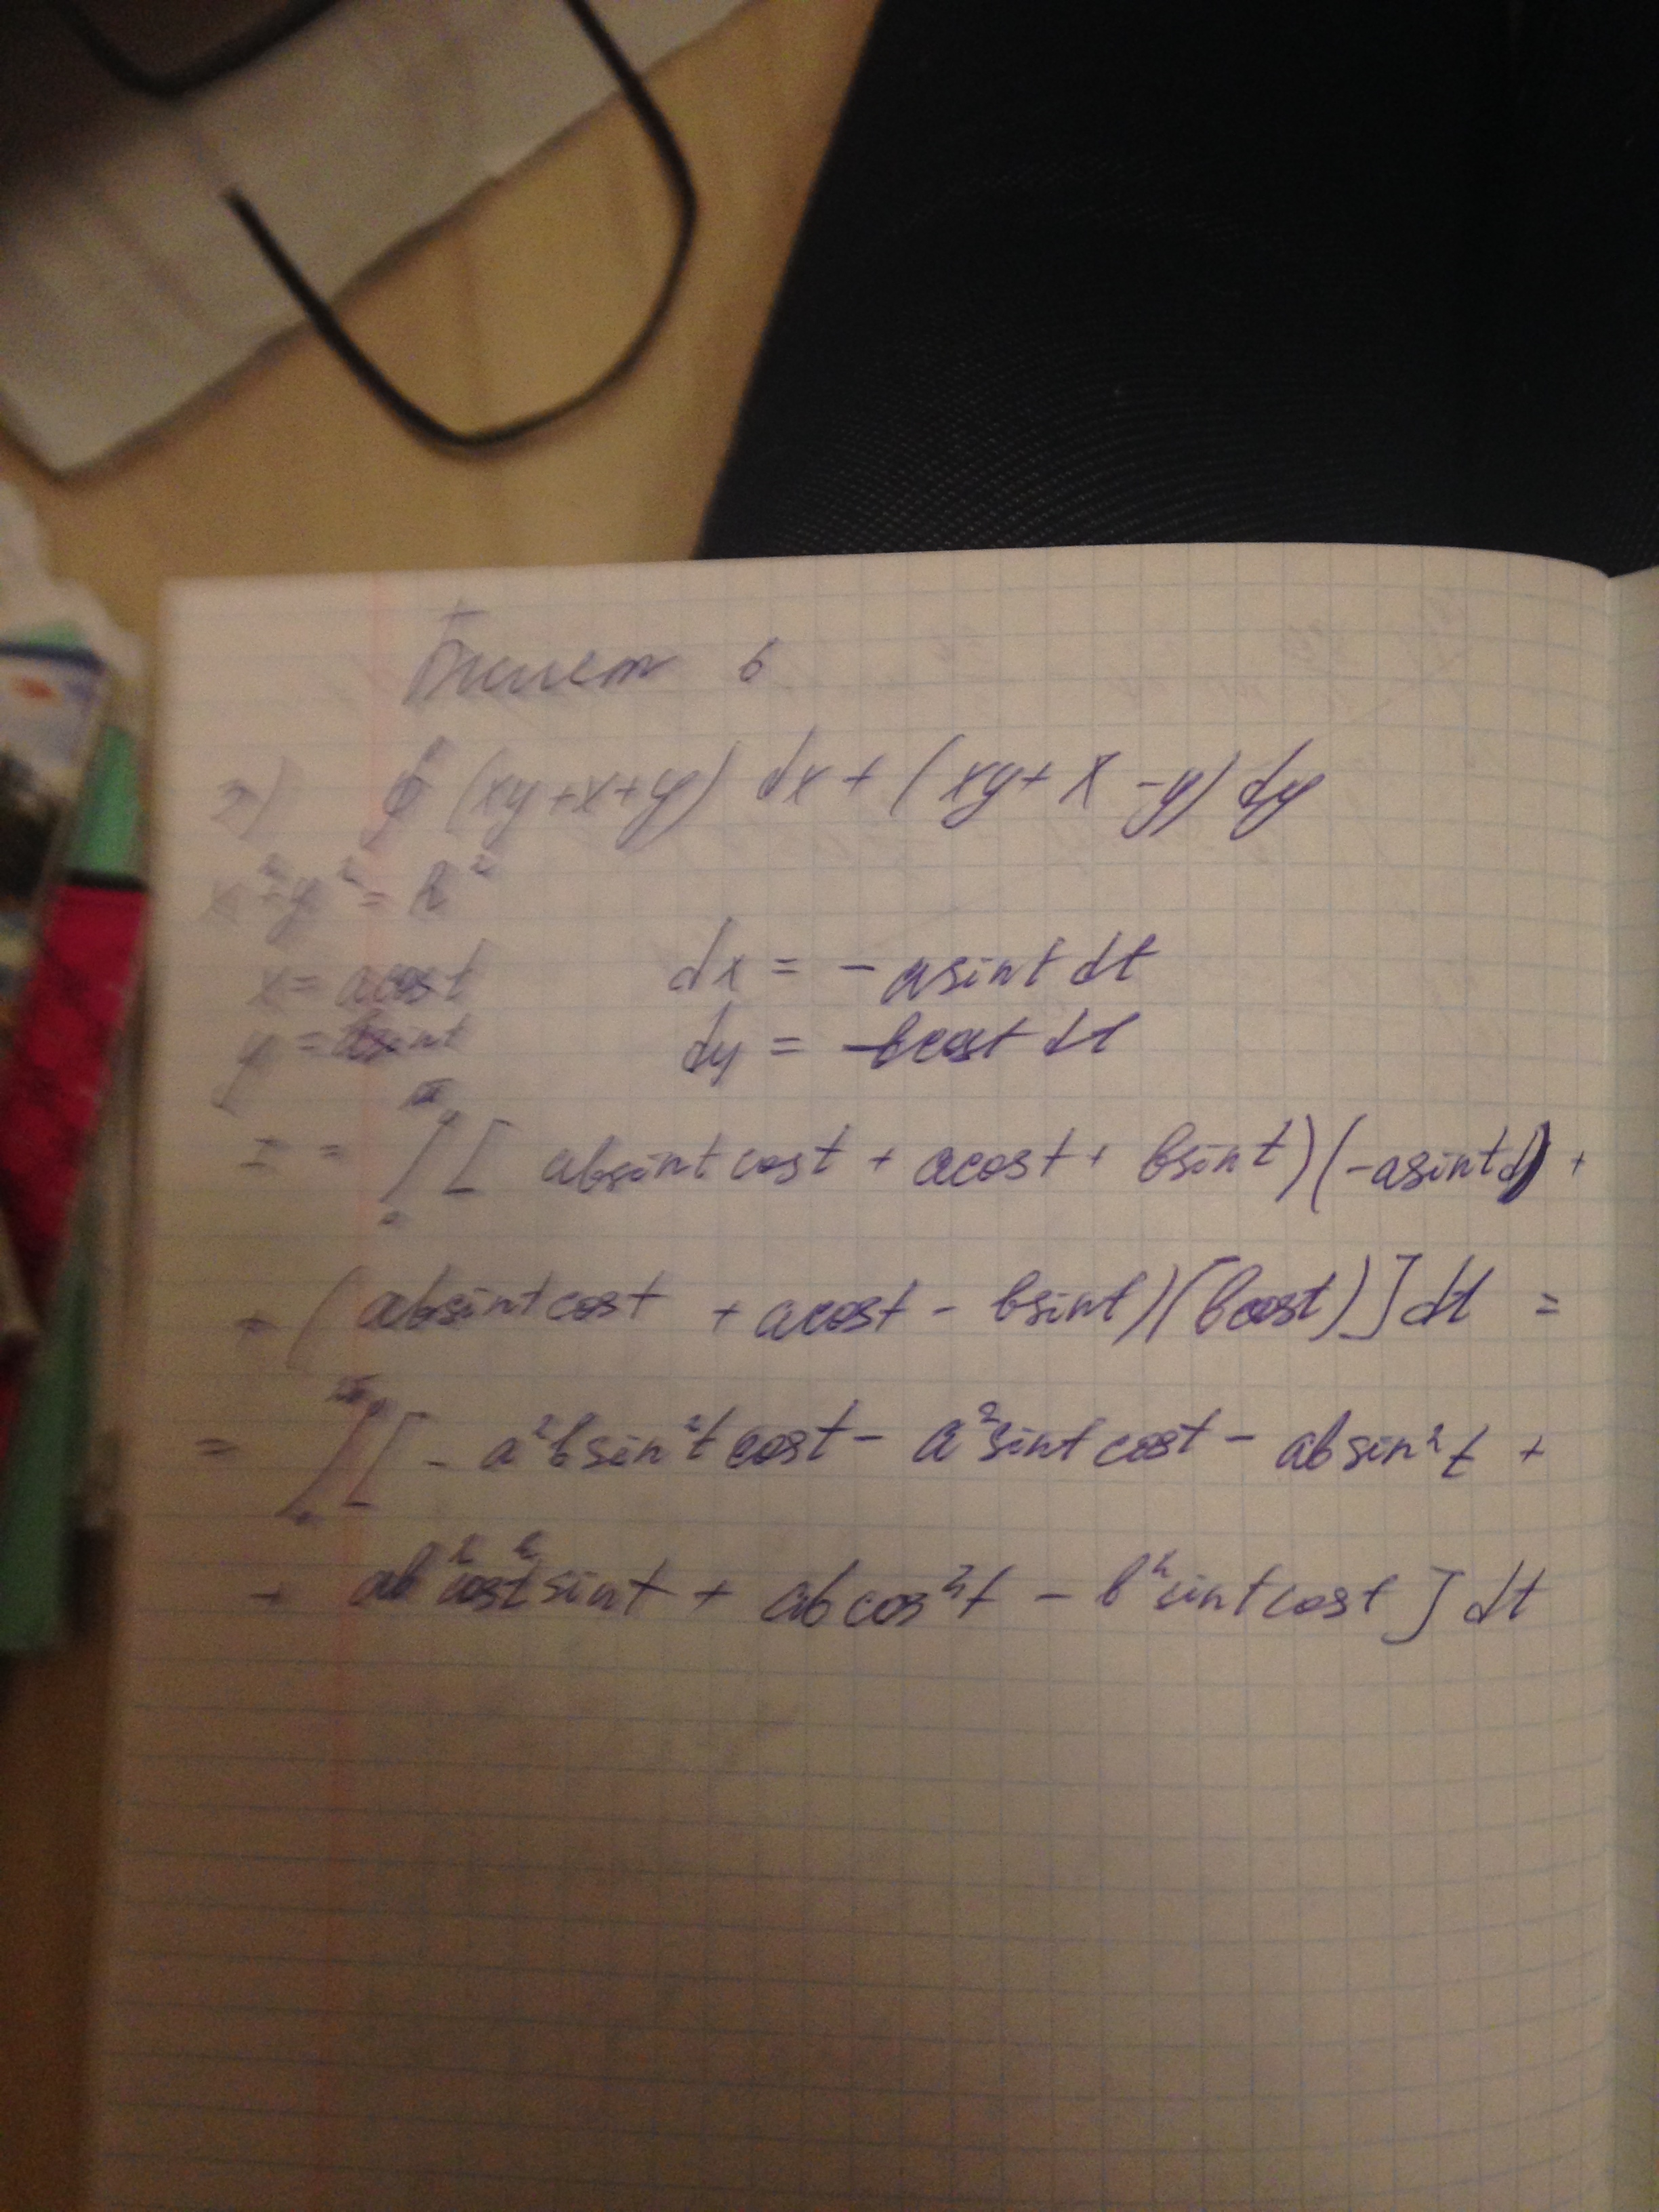 Билет 6
2) ∮ (xy+x+y) dx + (xy+x-y) dy
x²+y² = R²
x = a cost dx = - a sint dt
y = b sint dy = b cost dt
I = ∫ [ ab sint cost + a cost + b sint)(-a sint dt) +
+ (ab sint cost + a cost - b sint)(b cost)] dt =
= ∫ [ - a²b sin²t cost - a² sint cost - ab sin²t +
+ ab² cos²t sint + ab cos²t - b² sint cost ] dt